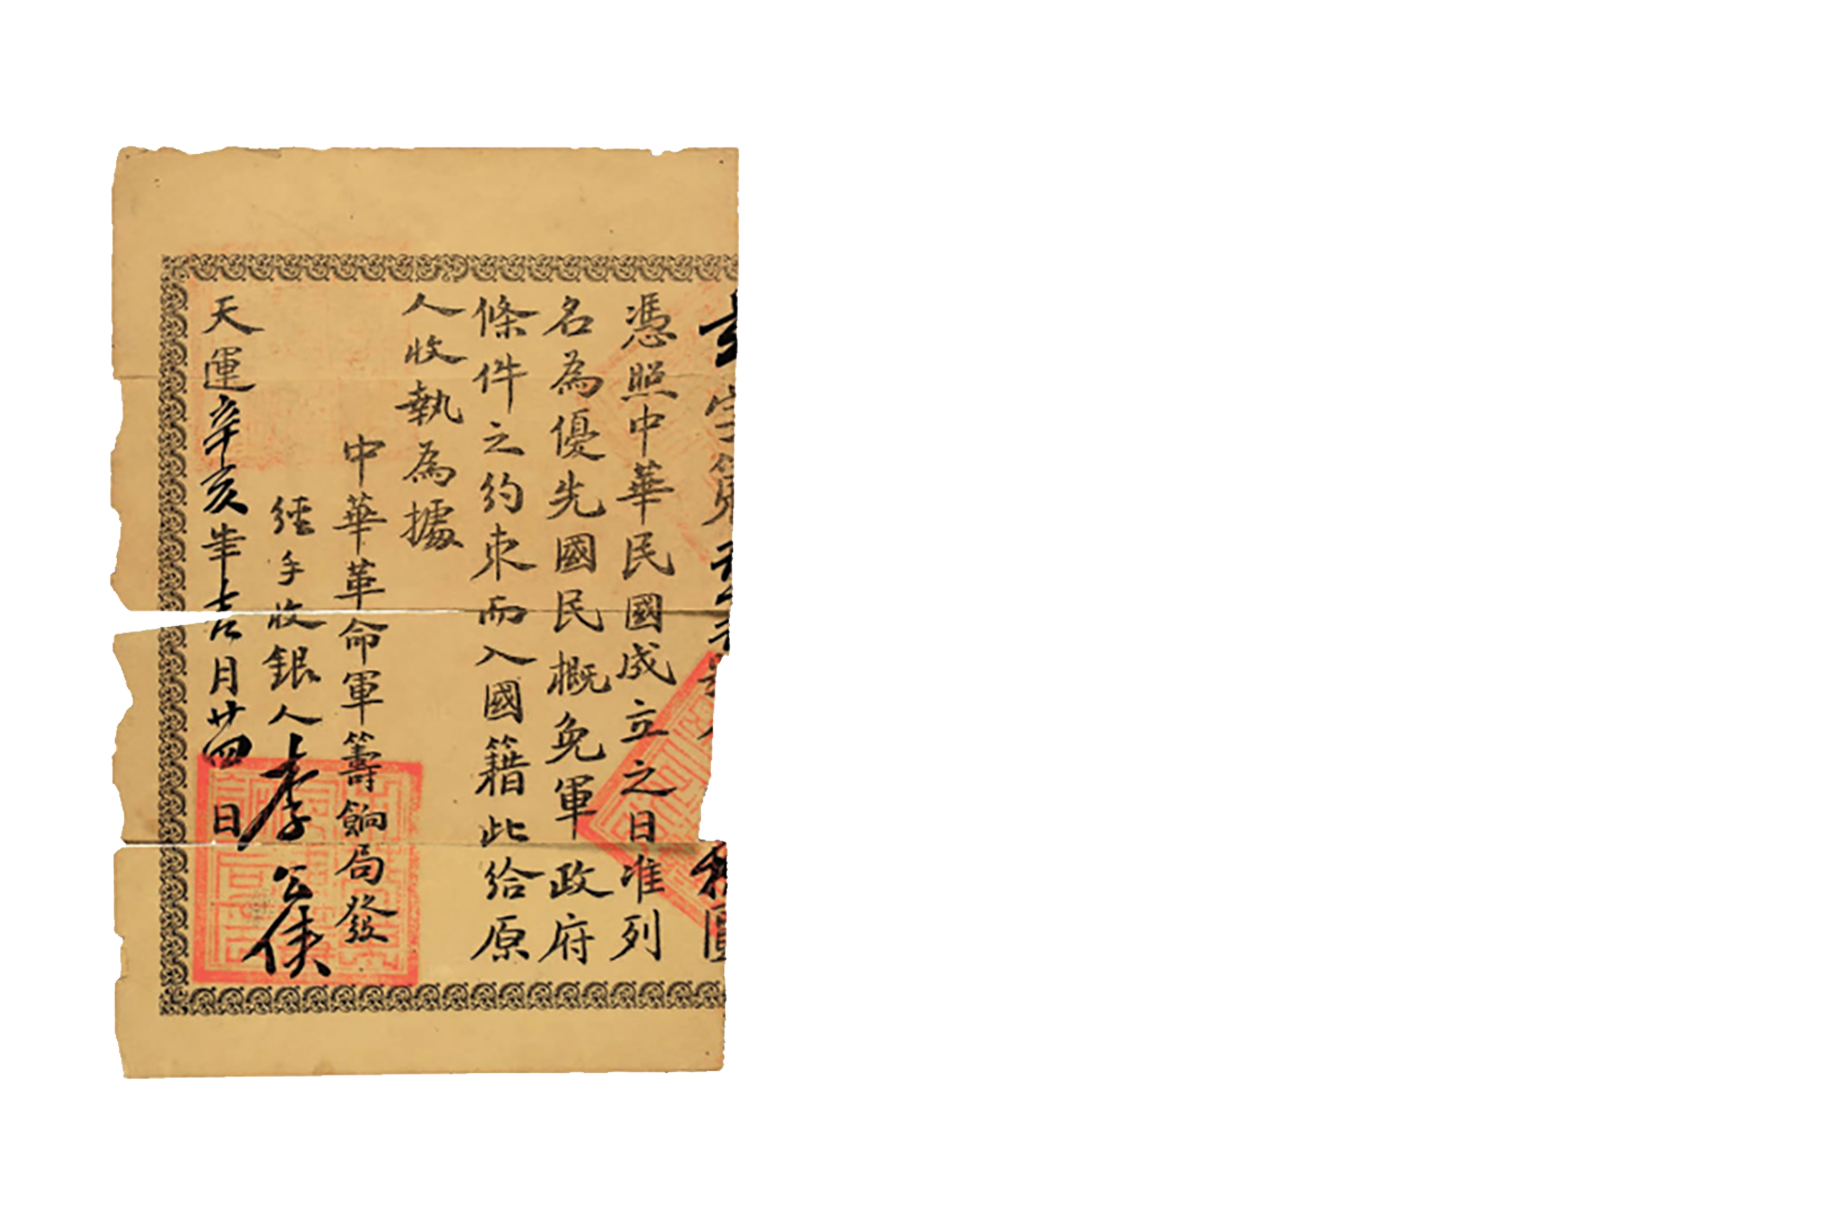 憑照中華民國成立之日准列
名為優先國民概免軍政府
條件之約束而入國籍此給原
人收執為據
中華革命軍籌餉局發
經手收銀人李公俠
天運辛亥年吉月廿四日